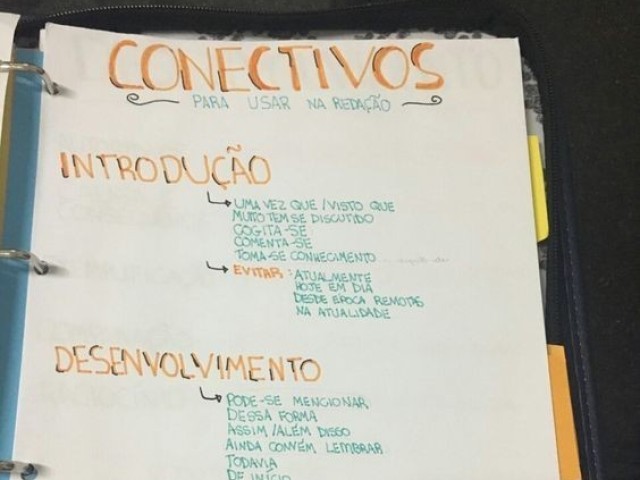 CONECTIVOS
PARA USAR NA REDAÇÃO
INTRODUÇÃO
UMA VEZ QUE / VISTO QUE
MUITO TEM SE DISCUTIDO
COGITA-SE
COMENTA-SE
TOMA-SE CONHECIMENTO
EVITAR: ATUALMENTE
HOJE EM DIA
DESDE EPOCA REMOTAS
NA ATUALIDADE
DESENVOLVIMENTO
PODE-SE MENCIONAR
DESSA FORMA
ASSIM / ALÉM DISSO
AINDA CONVÉM LEMBRAR
TODAVIA
DE INÍCIO